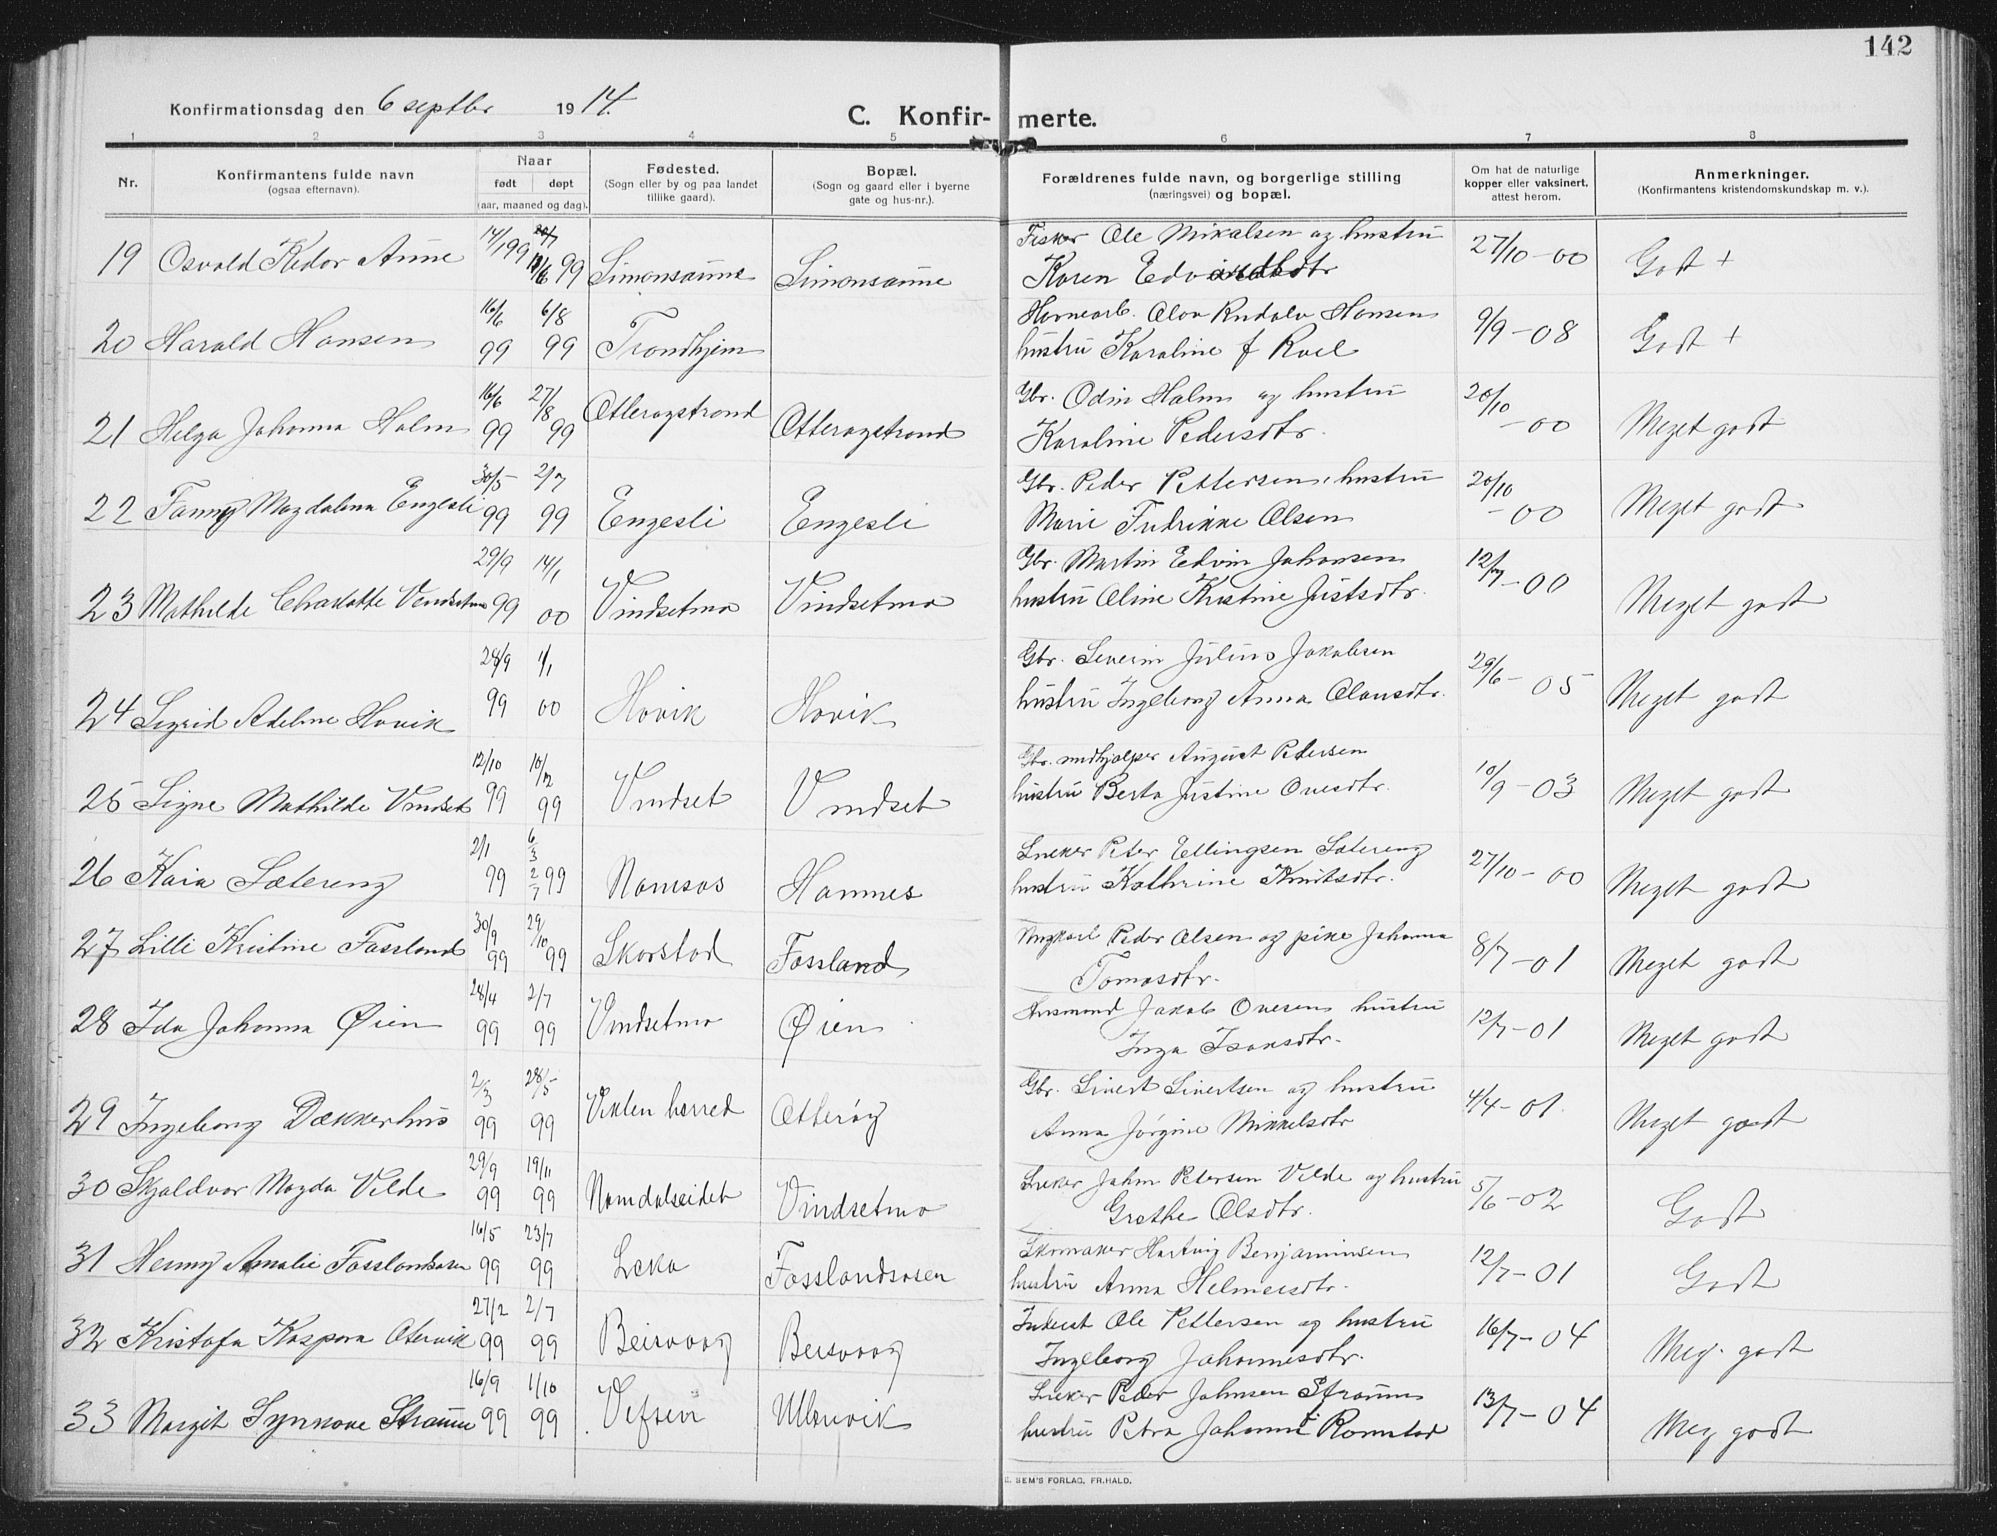 142
Konfirmationsdag den 6 septbr 1914.
C. Konfir- merte.
1 2 3 4 5 6 7 8
Nr.
Konfirmantens fulde navn
(ogsaa efternavn).
Naar
født døpt
(aar, maaned og dag).
Fødested.
(Sogn eller by og paa landet
tillike gaard).
Bopæl.
(Sogn og gaard eller i byerne
gate og hus-nr.).
Forældrenes fulde navn, og borgerlige stilling
(næringsvei) og bopæl.
Om hat de naturlige
kopper eller vaksinert,
attest herom.
Anmerkninger.
(Konfirmantens kristendomskundskap m. v.).
14/1 99 Fisker Ole Mikalsen og hustru
19 Osvald Kedor Aune 99 Simonsaune Simonsaune Karen Edvardsdtr 27/10-00 Godt +
16/6 6/8 Havnearb. Olav Rudolv Hansen
20 Harald Hansen 99 99 Trondhjem hustru Karoline f Roel 9/9-08 Godt +
16/6 27/8 Otterøystrand Gbr. Odin Holm og hustru 20/10
21 Helga Johanna Holm 99 99 Otterøystrand Karoline Pedersdtr. -00 Meget godt
30/5 2/7 Gbr. Peder Pettersen, hustru 20/10
22 Fanny Magdalena Engesli 99 99 Engesli Engesli Marie Fredrikke Olsen -00 Meget godt
29/9 14/1 Gbr. Martin Edvin Johansen
23 Mathilde Charlotte Vindsetmo 99 00 Vindsetmo Vindsetmo hustru Oline Kristine Justsdtr. 12/7-00 Meget godt
28/9 1/1 Gbr. Severin Julius Jakobsen
24 Sigrid Adeline Hovik 99 00 Hovik Hovik hustru Ingeborg Anna Olausdtr. 29/6-05 Meget godt
12/10 10/12 Gbr. medhjælper August Petersen
25 Signe Mathilde Vindset 99 99 Vindset Vindset hustru Berta Justine Ovesdtr. 10/9-03 Meget godt
2/1 6/3 Sneker Peter Ellingsen Sætereng
26 Kaia Sætereng 99 2/7 99 Namsos Hamnes hustru Kathrine Knutsdtr. 27/10-00 Meget godt
30/9 29/10 Ungkarl Peder Olsen og pike Johanna
27 Lilli Kristine Fossland 99 99 Skorstad Fossland Tomasdtr. 8/7-01 Meget godt
28/4 2/7 Husmand Jakob Ovesen hustru
28 Ida Johanna Øien 99 99 Vindsetmo Øien Inga Isaksdtr. 12/7-01 Meget godt
2/3 28/5 Gbr. Sivert Sivertsen og hustru
29 Ingeborg Dækkerhus 99 99 Vikten herred Otterøy Anna Jørgine Mikkelsdtr 4/4-01. Meget godt
29/9 19/11 Sneker Johan Petersen Velde og hustru
30 Skjaldvor Magda Velde 99 99 Namdalseidet Vindsetmo Grethe Olsdtr. 5/6-02 Godt
16/5 23/7 Skomaker Hartvig Benjaminsen
31 Henny Amalie Fosslandsosen 99 99 Leka Fosslandsosen hustru Anna Helmersdtr. 12/7-01 Godt
27/2 2/7 Inderst Ole Pettersen og hustru
32 Kristofa Kaspara Otervik 99 99 Beisvaag Beisvaag Ingeborg Johannesdtr. 16/7-04 Meg. godt
16/9 1/10 Sneker Peder Johnsen Straum
33 Margit Synnøve Straum 99 99 Vefsen Ulsvik hustru Petra Johanne f Romstad 13/7-04 Meg godt
E. SEM'S FORLAG, FR.HALD.